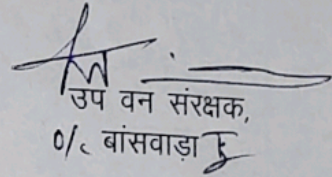 उप वन संरक्षक,
०/c बांसवाड़ा